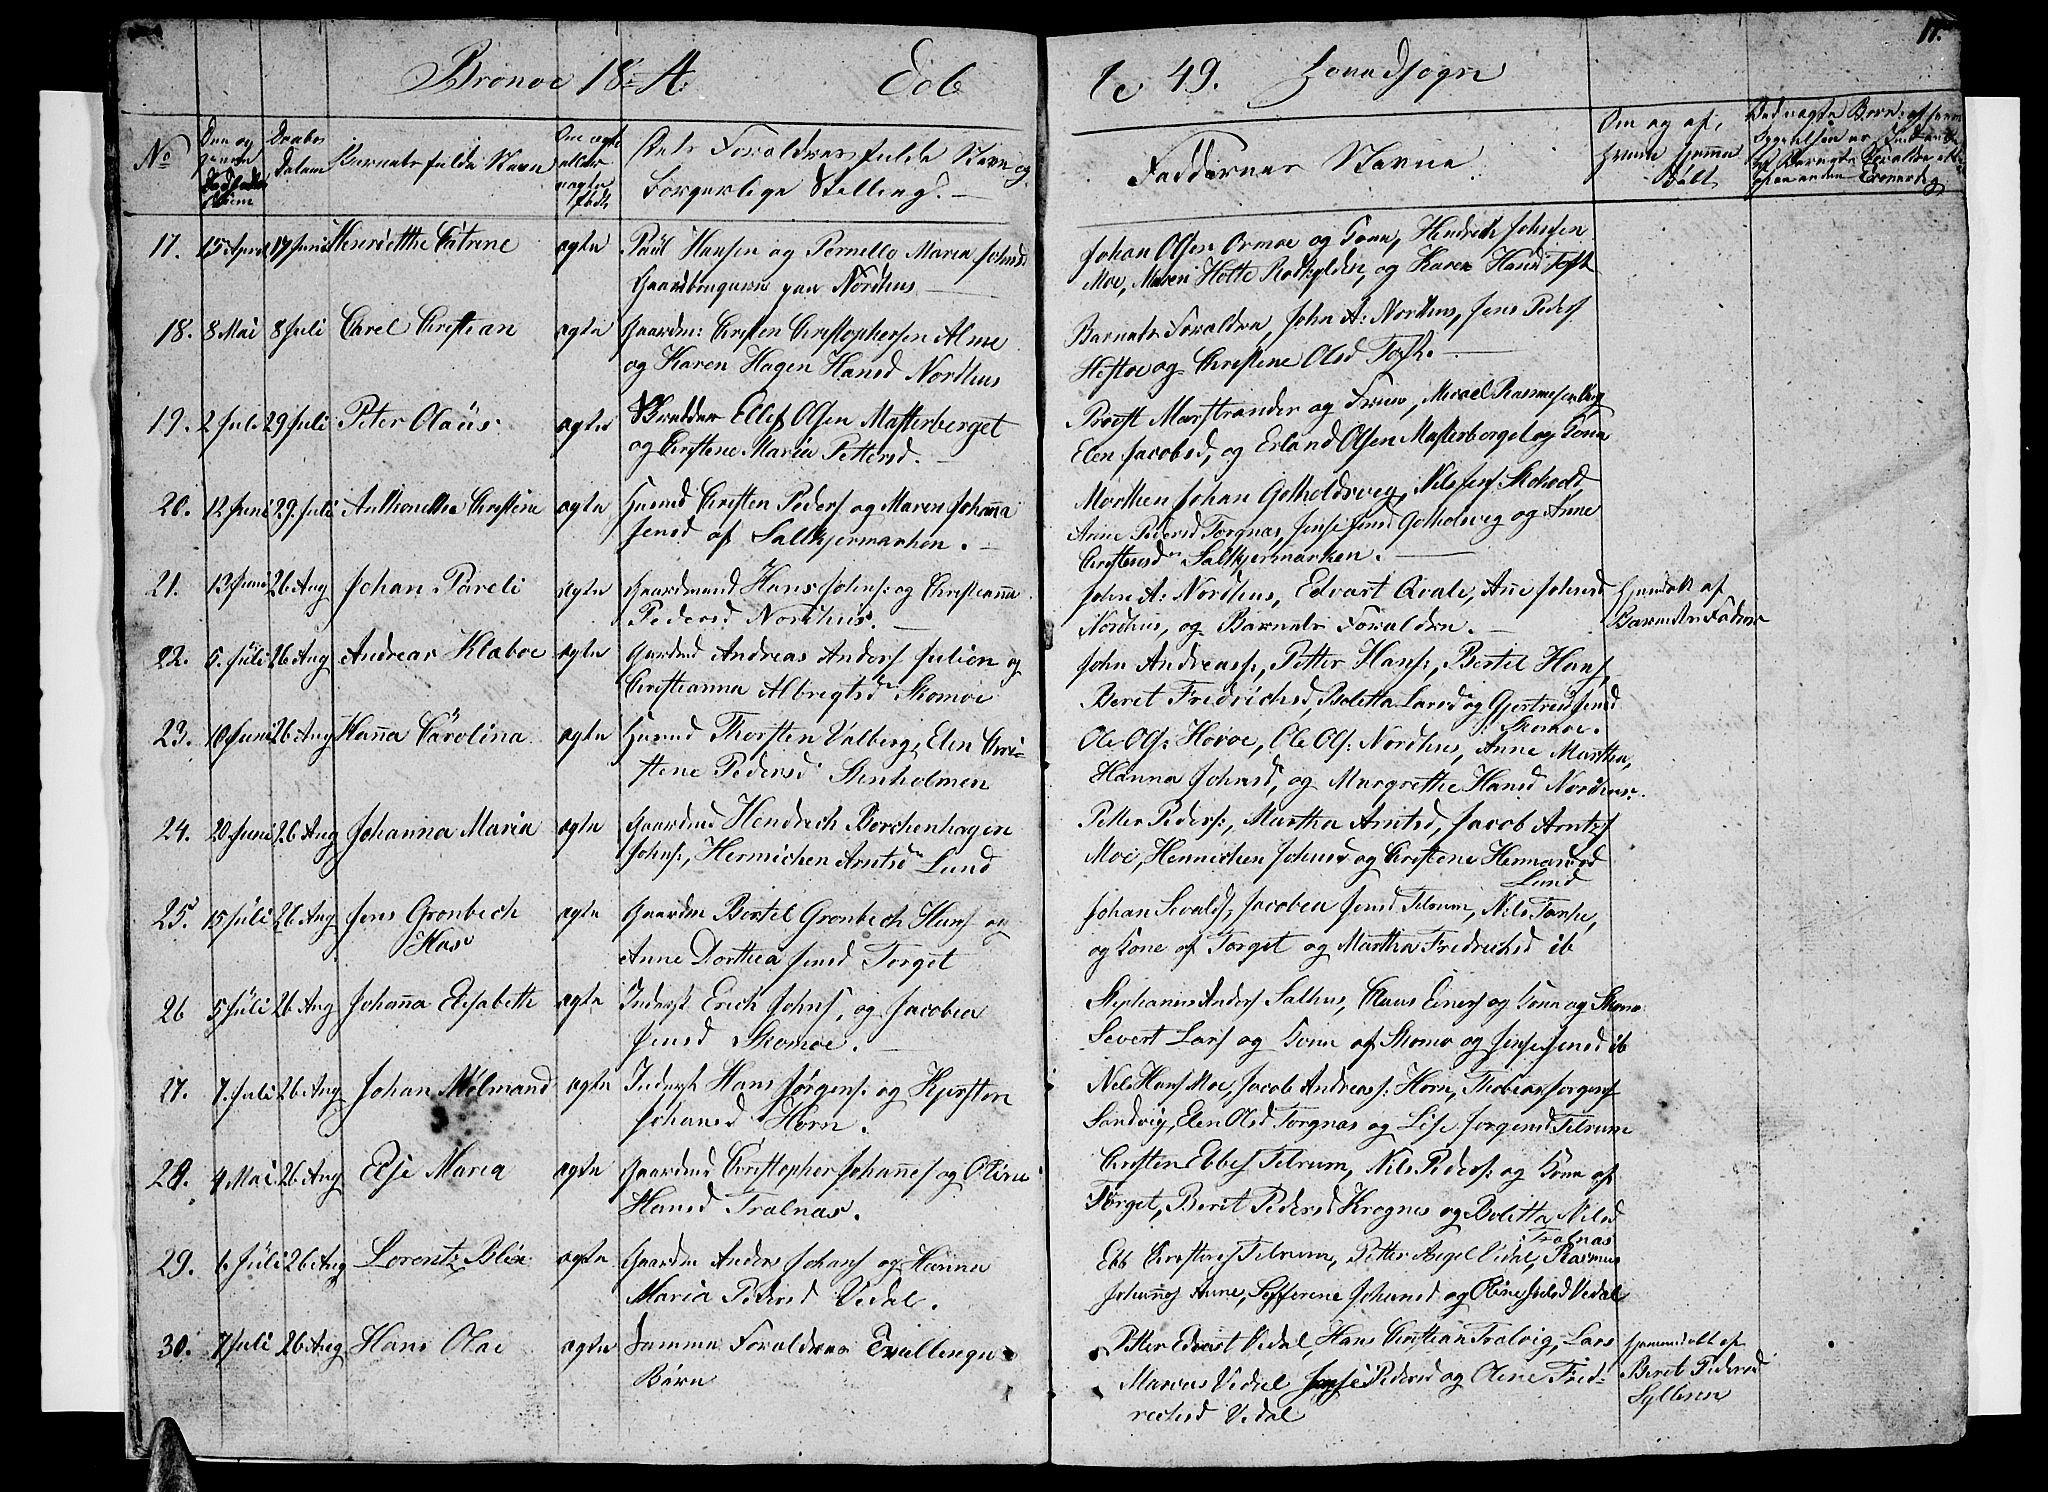 17.
Brønøe 18 A: Døb
te 49. Hovedsogn
No
Daabs Datum
Barnets fulde Navn
Om ægte eller uægte født
Dets Forældres fulde Navn og borgerlige Stilling.
Faddernes Navne
Om og af hvem hjemmedøbt
17. 15 April 17 Juni Henriette Catrine ægte Paul Hansen og Pernelle Maria Johnsd
Gaardbrugern paa Nordhus
Johan Olsen Ormøe og Kone, Hendrich Johnsen
Moe, Maren Hotte og Karen Hansd Toft
18. 8 Mai 8 Juli Carel Christian ægte Gaardm: Cristen Cristophersen Alme
og Karen Hagen Hansd Nordhus
Barnets Forældre, John A: Nordhus, Jens Peders
Hestøe og Christene Olsd Toft.
19. 2 Juli 29 Juli Peter Olaüs ægte Ellef Olsen Masterberget
og Cristene Maria Pettersd.
Provst Marstrander og Frue, Micael Rasmusen
Elen Jacobsd, og Erland Olsen Masterberget og Kone
20. 12 Juni 29. Juli Anthonette Christine ægte Husmd Cristen Peders og Maren Johanna
Jensd af Salhusmarken.
Morthen Johan Gotholdsveg, Nils Jens
Anne Pedersd Torgnæs, Jensd Gotholsveg og Anne
Cristensd Salhusmarken.
21. 13 Juni 26 Aug Johan Pareli ægte Gaardmand Hans Johns: og Christianna
Pedersd Nordhus.
John A: Nordhus, Edvart Qvale, Ane Johnsd
Nordhus, og Barnets Forældre.
Hjemdøbt af
Barnets Fader
22. 5. Juli 26 Aug Andreas Klæboe ægte Gardmd Andreas Anders Julien og
Cristianna Albregtsd Skomoe
John Andreass:, Petter Hans:, Bertel Hans,
Beret Fredrichsd, Boletta Larsd og Gjertrud Jensd
Skomoe.
23. 10 Juni 26 Aug Hanna Carolina ægte Husmd Thorsten Valberg, Elen Cri-
stene Pedersd Stenholmen
Ole Ols: Horoe, Ole Ols: Nordhus, Anne Martha,
Hanna Johnsd, og Margrethe Hansd Nordhus.
24. 20 Juni 26 Aug Johanna Maria ægte Gaardmd Hendrich Borchenhagen
Johns:, Hermichen Arntsd Lund
Petter Peders:, Martha Arntsd, Jacob Arntzs
Moe, Hennichen Johnsd og Cristene Hermansd
Lund
25. 15 Juli 26 Aug Jens Grønbech
Has ægte Gaardm Bertel Grønbech Hans og
Anne Dorthea Jensd Torget
Johan Sevals, Jacobea Jensd Tilrum, Nils
og Kone af Torget og Martha Fredrichsd ib
26 5 Juli 26 Aug Johanna Elisabeth ægte Inderst Erich Johns, og Jacobea
Jensd Skomoe.
Stephanus Anders Salhus, Claus Einers og Kone og Skomo
Severt Lars og Kone af Skomo og Jensd ib
27. 7. Juli 26 Aug Johan Mølmand ægte Inderst Hans Jørgens: og Kjersten
Johansd Horn.
Nils Hans Moe, Jacob Andreass: Horn, Thobias Jørgens
Sandvig, Elen Olsd Torgnæs og Lise Jørgensd Tilrum
28. 4 Mai 26 Aug Else Maria ægte Gaardmd Cristopher Johannes og Oline
Hansd Trælnæs.
Cristen Ebbes Tilrum, Nils Peders: og Kone af
Torget, Berit Pedersd Krognes og Boletta Nilsd
Trælnæs
29. 6. Juli 26 Aug Lorentz Blix ægte Gaardm Anders Johans og Hanna
Maria Pedersd Vedal.
Ebb Cristens Tilrum, Petter Angel Vedal, Rasmus
Johannes Anne, Sefferene Johansd og Oline Vedal
30. 7 Juli 26 Aug Hans Olai ægte Samme Forældres Tvillinge
Børn
Petter Edvart Vedal, Hans Christian Trælvig, Lars
Marcus Vedal Pedersd og Olene Fred-
richsd Vedal
Hjemmedøbt af
Beret Pedersd
Sylteren